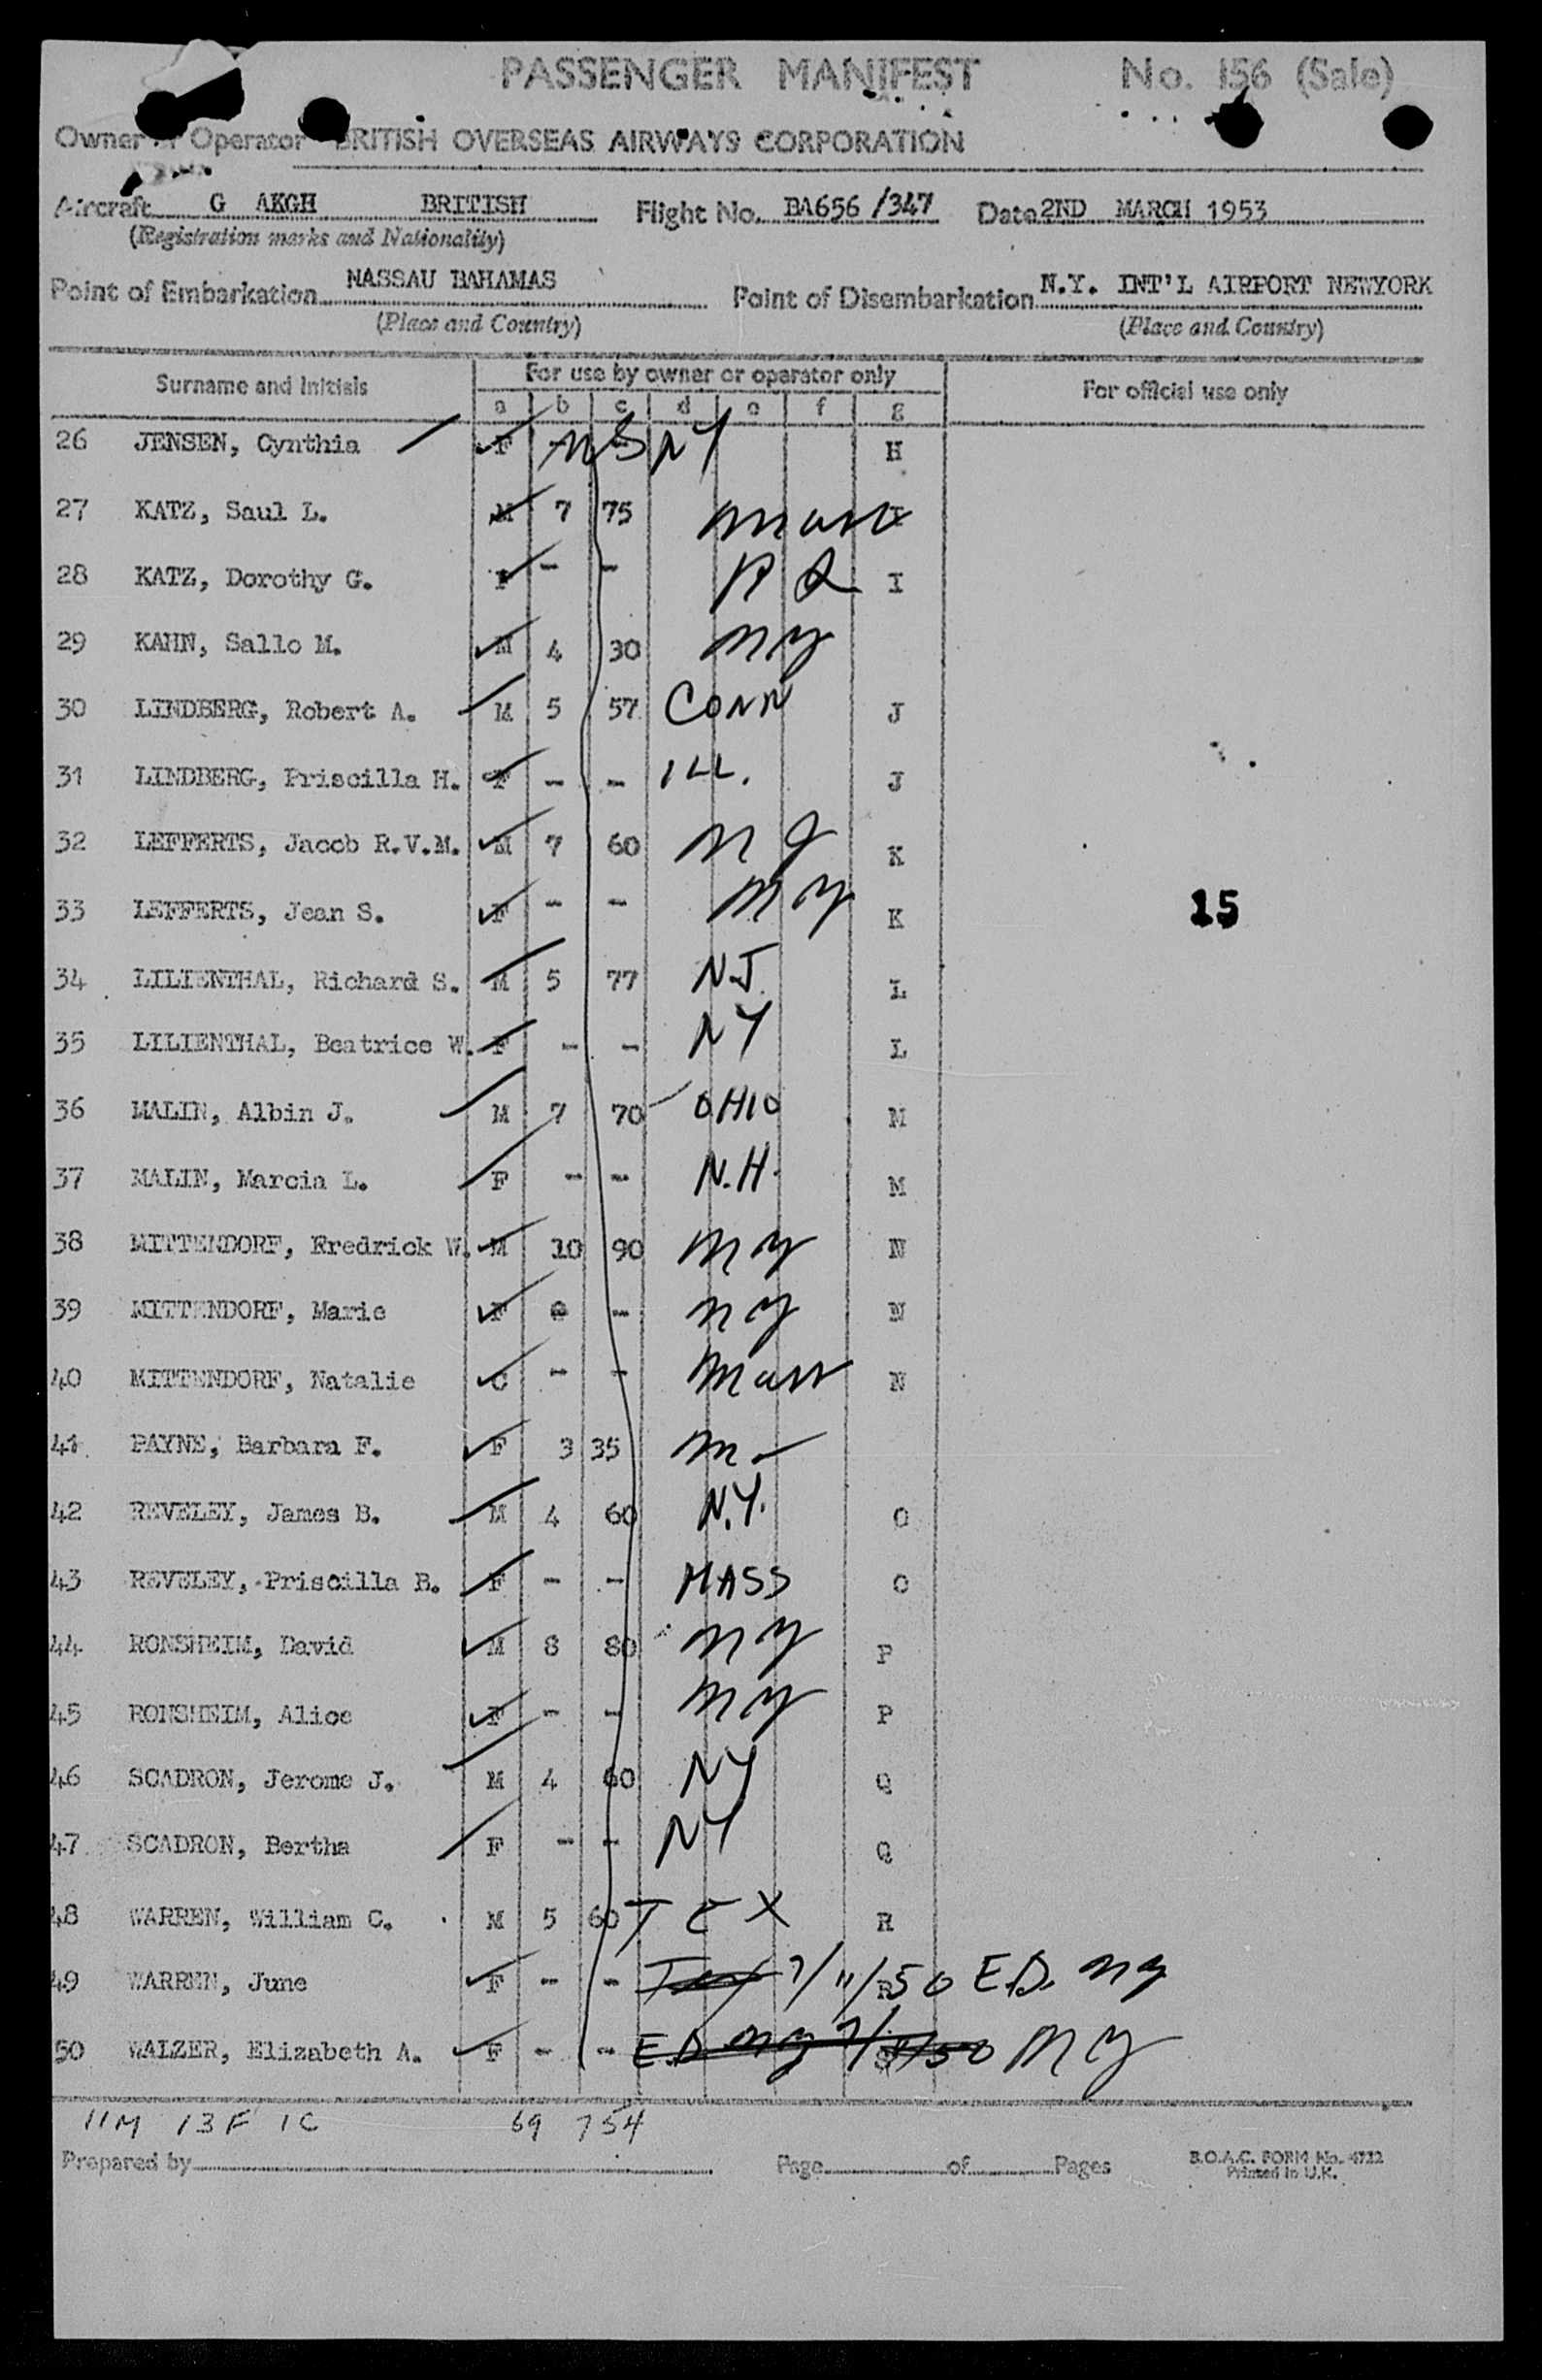 PASSENGER MANIFEST No. 156 (Sale)
Owner Operator BRITISH OVERSEAS AIRWAYS CORPORATION
Aircraft G AKGH BRITISH Flight No. BA656/347 Date 2ND MARCH 1953
(Registration marks and Nationality)
Point of Embarkation NASSAU BAHAMAS Point of Disembarkation N.Y. INT'L AIRPORT NEWYORK
(Place and Country) (Place and Country)
Surname and Initials For use by owner or operator only For official use only
a b c d e f g
26 JENSEN, Cynthia F - NY H
27 KATZ, Saul L. M 7 75 Mass
28 KATZ, Dorothy G. F - - I
29 KAHN, Sallo M. M 4 30 NY
30 LINDBERG, Robert A. M 5 57 CONN J
31 LINDBERG, Priscilla H. F - - ILL. J
32 LEFFERTS, Jacob R.V.M. M 7 60 NJ K
33 LEFFERTS, Jean S. F - - NY K
15
34 LILIENTHAL, Richard S. M 5 77 NJ L
35 LILIENTHAL, Beatrice W. F - - NY L
36 MALIN, Albin J. M 7 70 OHIO M
37 MALIN, Marcia L. F - - N.H. M
38 MITTENDORF, Fredrick W. M 10 90 NY N
39 MITTENDORF, Marie F - NY N
40 MITTENDORF, Natalie C - - Mass N
41 PAYNE, Barbara F. F 3 35
42 REVELEY, James B. M 4 60 N.Y. O
43 REVELEY, Priscilla B. F - - MASS O
44 RONSHEIM, David M 8 80 NY P
45 RONSHEIM, Alice F - - NY P
46 SCADRON, Jerome J. M 4 60 NY Q
47 SCADRON, Bertha F - - NY Q
48 WARREN, William C. M 5 60 TEX R
49 WARREN, June F - - Tex 7/11/50 E.D. NY
50 WALZER, Elizabeth A. F - - E.D. NY NY
11M 13F 1C 69 754
Prepared by Page of Pages B.O.A.C. FORM No. 4722
Printed in U.K.